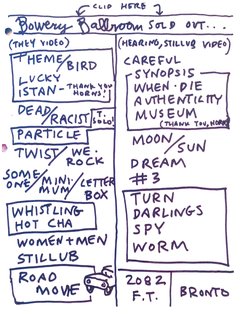 CLIP HERE
Bowery Ballroom SOLD OUT...
(THEY VIDEO)
THEME/BIRD
LUCKY
ISTAN- THANK YOU
HORNS!
DEAD/RACIST T. SOLO!
PARTICLE
TWIST/WE·ROCK
SOME
ONE/MINI·MUM/LETTER
BOX
WHISTLING
HOT CHA
WOMEN+MEN
STILLUB
ROAD
MOVE
(HEARING, STILLUB VIDEO)
CAREFUL
SYNOPSIS
WHEN·DIE
AUTHENTICITY
MUSEUM
(THANK YOU, HORNS)
MOON/SUN
DREAM
#3
TURN
DARLINGS
SPY
WORM
2082
F.T.
BRONTO